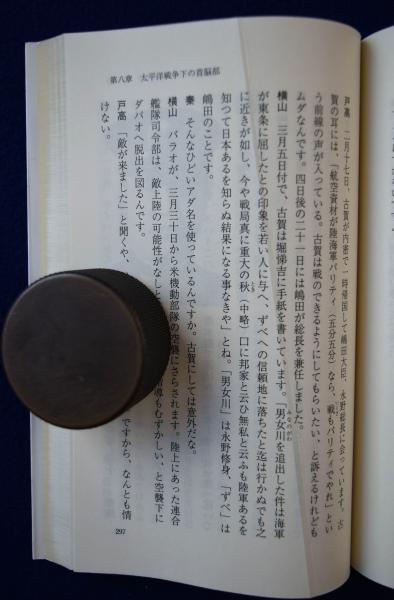 第八章　太平洋戦争下の首脳部
戸高　二月十七日、古賀が内密で一時帰国して嶋田大臣、永野総長に会っています。古
賀の耳には、「航空資材が陸海軍パリティ（五分五分）なら、戦もパリティでやれ」とい
う前線の声が入っている。古賀は戦のできるようにしてもらいたい、と訴えるけれども
ムダなんです。四日後の二十一日には嶋田が総長を兼任しました。
横山　三月五日付で、古賀は堀悌吉に手紙を書いています。「男女川を追出した件は海軍
みなのがわ
が東条に屈したとの印象を若い人に与へ、ずべへの信頼地に落ちたと迄は行かぬでも之
に近きが如し、今や戦局真に重大の秋（中略）口に邦家と云ひ無私と云ふも陸軍あるを
知つて日本あるを知らぬ結果になる事なきや」とね。「男女川」は永野修身、「ずべ」は
嶋田のことです。
秦　そんなひどいアダ名を使っているんですか。古賀にしては意外だな。
横山　パラオが、三月三十日から米機動部隊の空襲にさらされます。陸上にあった連合
艦隊司令部は、敵上陸の可能性がなしと
導もむずかしい、と空襲下に
ダバオへ脱出を図るんです。
戸高　「敵が来ました」と聞くや、
ですから、なんとも情
けない。
297